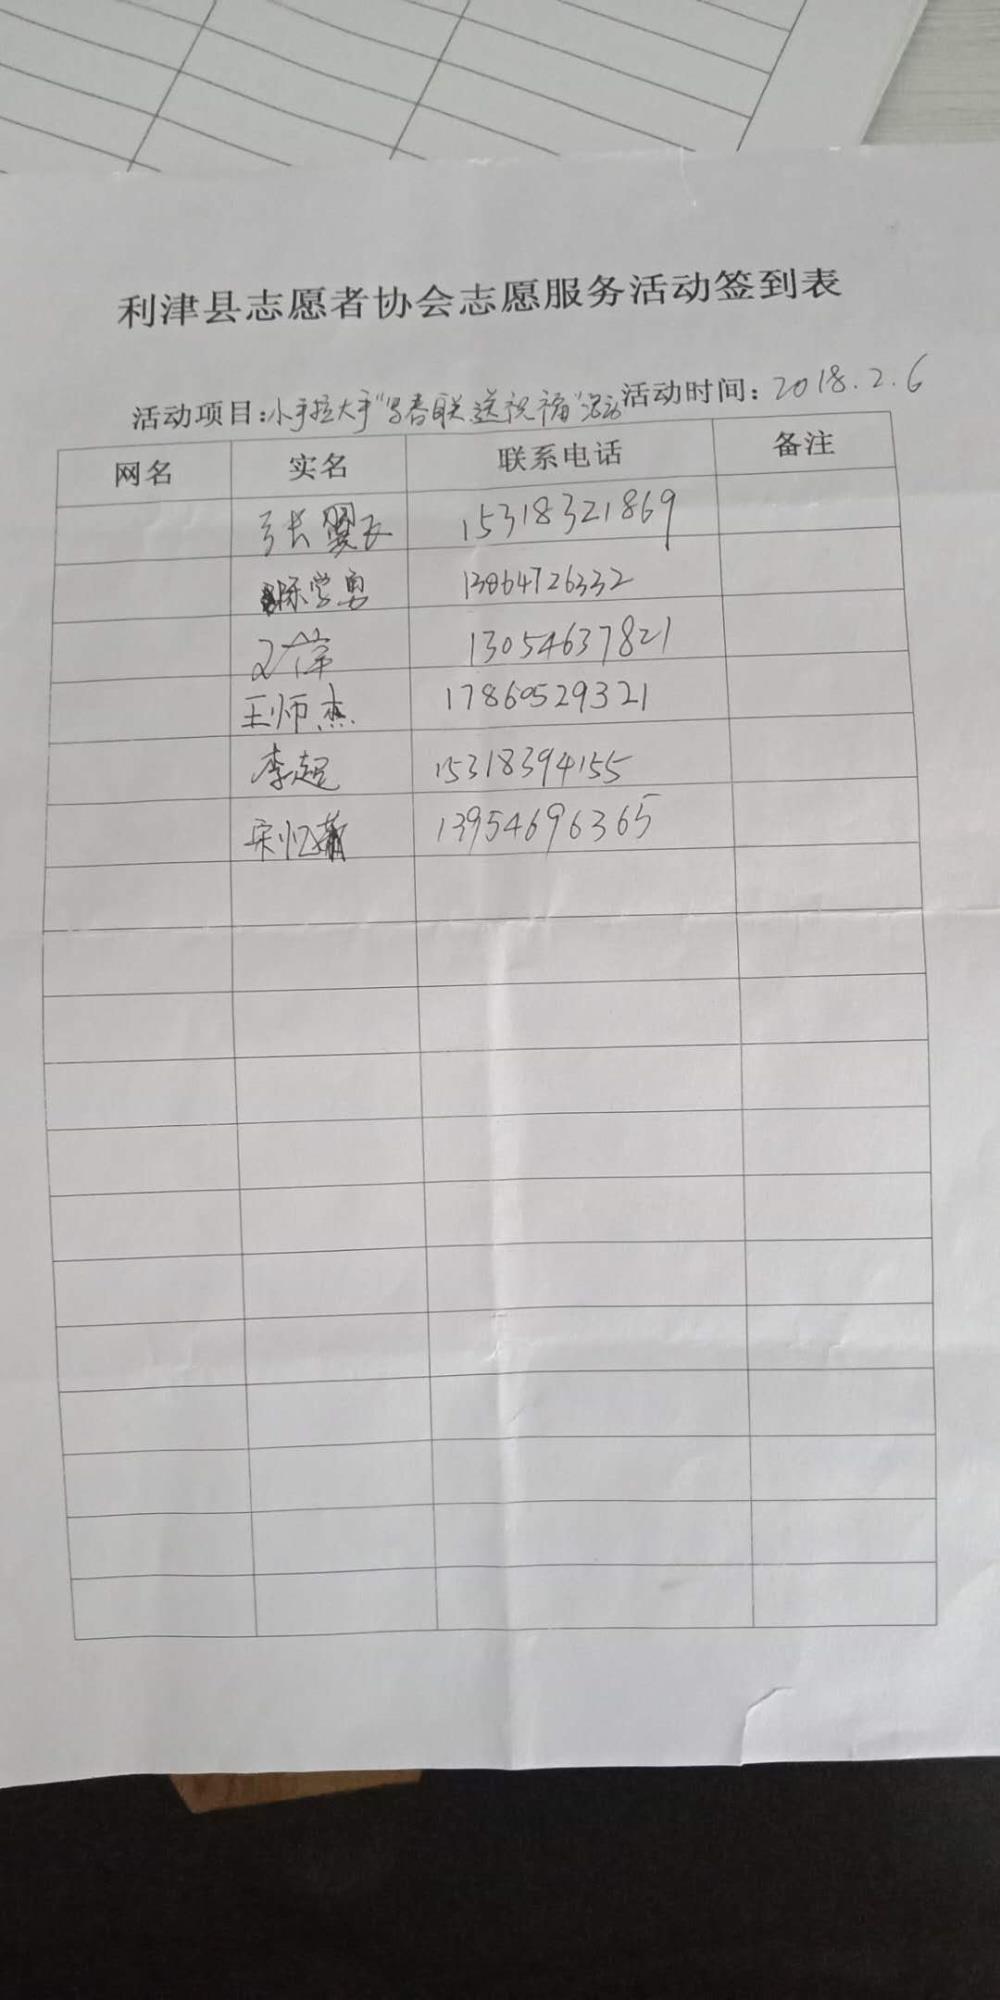 利津县志愿者协会志愿服务活动签到表
活动项目:小手拉大手“写春联送祝福”活动 活动时间:2018.2.6
网名 实名 联系电话 备注
张翼飞 15318321869
陈学勇 13864726332
萍 13054637821
王师杰 17860529321
李超 15318394155
宋忆 13954696365